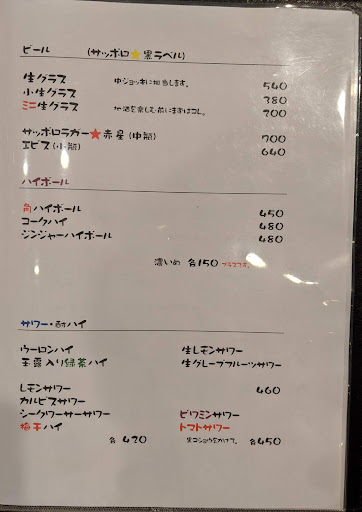 ビール (サッポロ★黒ラベル)
生グラス 中ジョッキに相当します。 540
小生グラス 380
ミニ生グラス 地酒を楽しむ前にまずはコレ。 200
サッポロラガー★赤星(中瓶) 700
エビス(小瓶) 640
ハイボール
角ハイボール 450
コークハイ 480
ジンジャーハイボール 480
濃いめ 各150 プラスです。
サワー・酎ハイ
ウーロンハイ 生レモンサワー
玉露入り緑茶ハイ 生グレープフルーツサワー
レモンサワー 460
カルピスサワー
シークワーサーサワー ビタミンサワー
梅干ハイ トマトサワー
各 420 黒コショウをかけて。 各450